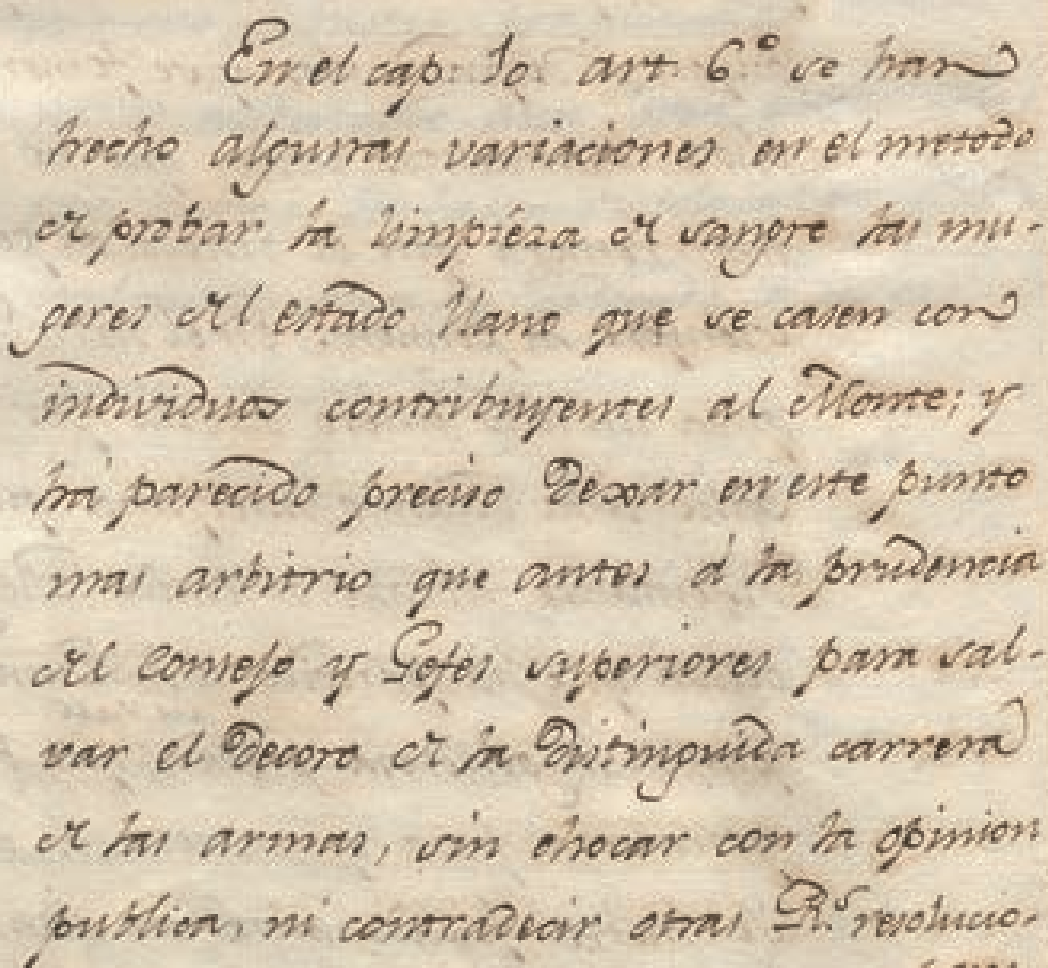 En el cap. 10 art. 6.º se han
hecho algunas variaciones en el metodo
de probar la limpieza de sangre las mu-
geres del estado llano que se casen con
individuos contribuyentes al Monte; y
há parecido preciso dexar en este punto
mas arbitrio que antes á la prudencia
del Consejo y Gefes superiores para sal-
var el decoro de la distinguida carrera
de las armas, sin chocar con la opinion
publica, ni contradecir otras R.s resolucio-